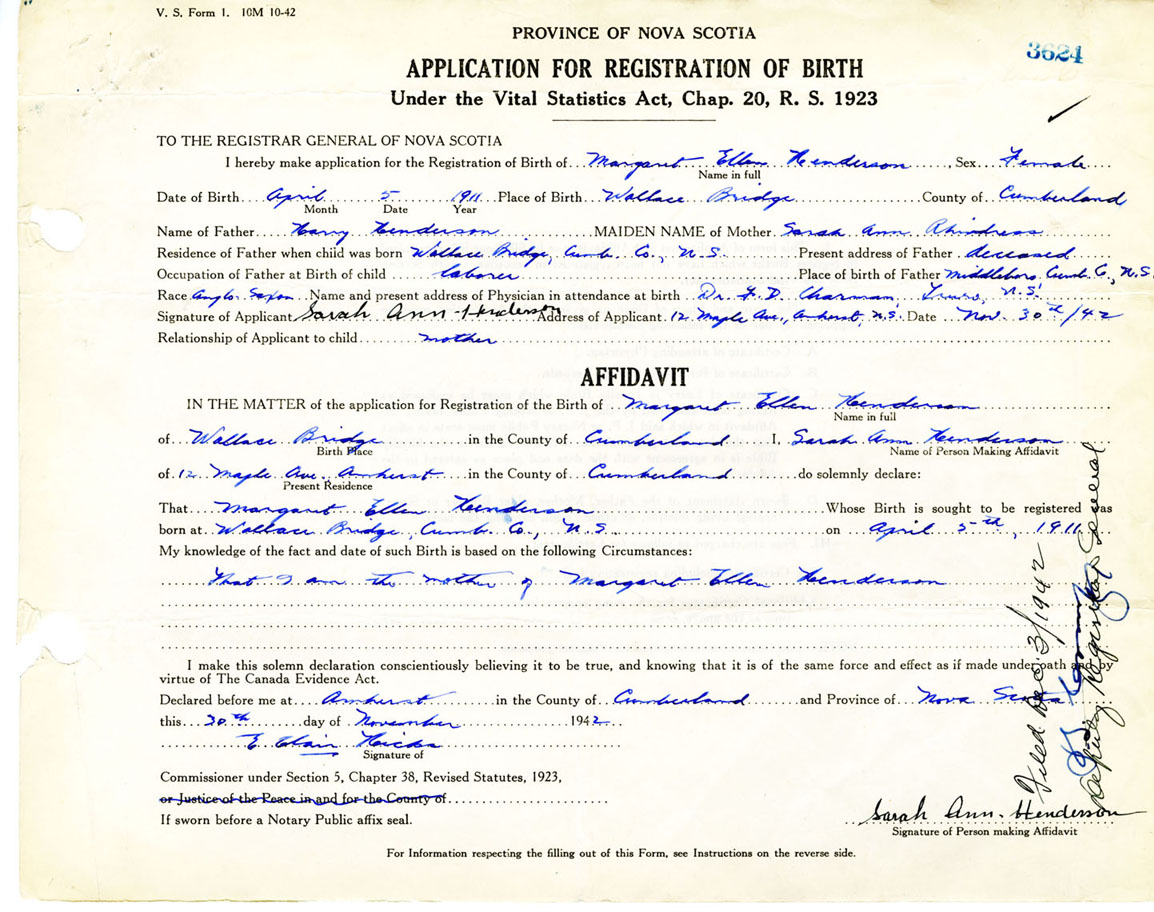 V. S. Form 1. 10M 10-42
PROVINCE OF NOVA SCOTIA
3624
APPLICATION FOR REGISTRATION OF BIRTH
Under the Vital Statistics Act, Chap. 20, R. S. 1923
TO THE REGISTRAR GENERAL OF NOVA SCOTIA
I hereby make application for the Registration of Birth of Margaret Ellen Henderson, Sex Female
Name in full
Date of Birth April 5 1911 Place of Birth Wallace Bridge County of Cumberland
Month Date Year
Name of Father Harry Henderson MAIDEN NAME of Mother Sarah Ann Rhindress
Residence of Father when child was born Wallace Bridge, Cumb. Co., N.S. Present address of Father deceased
Occupation of Father at Birth of child laborer Place of birth of Father Middleboro Cumb. Co., N.S.
Race Anglo Saxon Name and present address of Physician in attendance at birth Dr. F. D. Charman, Truro, N.S.
Signature of Applicant Sarah Ann Henderson Address of Applicant 12 Maple Ave., Amherst, N.S. Date Nov. 30th/42
Relationship of Applicant to child mother
AFFIDAVIT
IN THE MATTER of the application for Registration of the Birth of Margaret Ellen Henderson
Name in full
of Wallace Bridge in the County of Cumberland I, Sarah Ann Henderson
Birth Place Name of Person Making Affidavit
of 12 Maple Ave. Amherst in the County of Cumberland do solemnly declare:
Present Residence
That Margaret Ellen Henderson Whose Birth is sought to be registered was
born at Wallace Bridge, Cumb. Co., N.S. on April 5th, 1911
My knowledge of the fact and date of such Birth is based on the following Circumstances:
That I am the mother of Margaret Ellen Henderson
I make this solemn declaration conscientiously believing it to be true, and knowing that it is of the same force and effect as if made under oath and by
virtue of The Canada Evidence Act.
Declared before me at Amherst in the County of Cumberland and Province of Nova Scotia
this 30th day of November 1942
E Clair Hicks
Signature of
Commissioner under Section 5, Chapter 38, Revised Statutes, 1923,
or Justice of the Peace in and for the County of
If sworn before a Notary Public affix seal.
Sarah Ann Henderson
Signature of Person making Affidavit
For Information respecting the filling out of this Form, see Instructions on the reverse side.
Filed Dec 3/1942
Deputy Registrar General